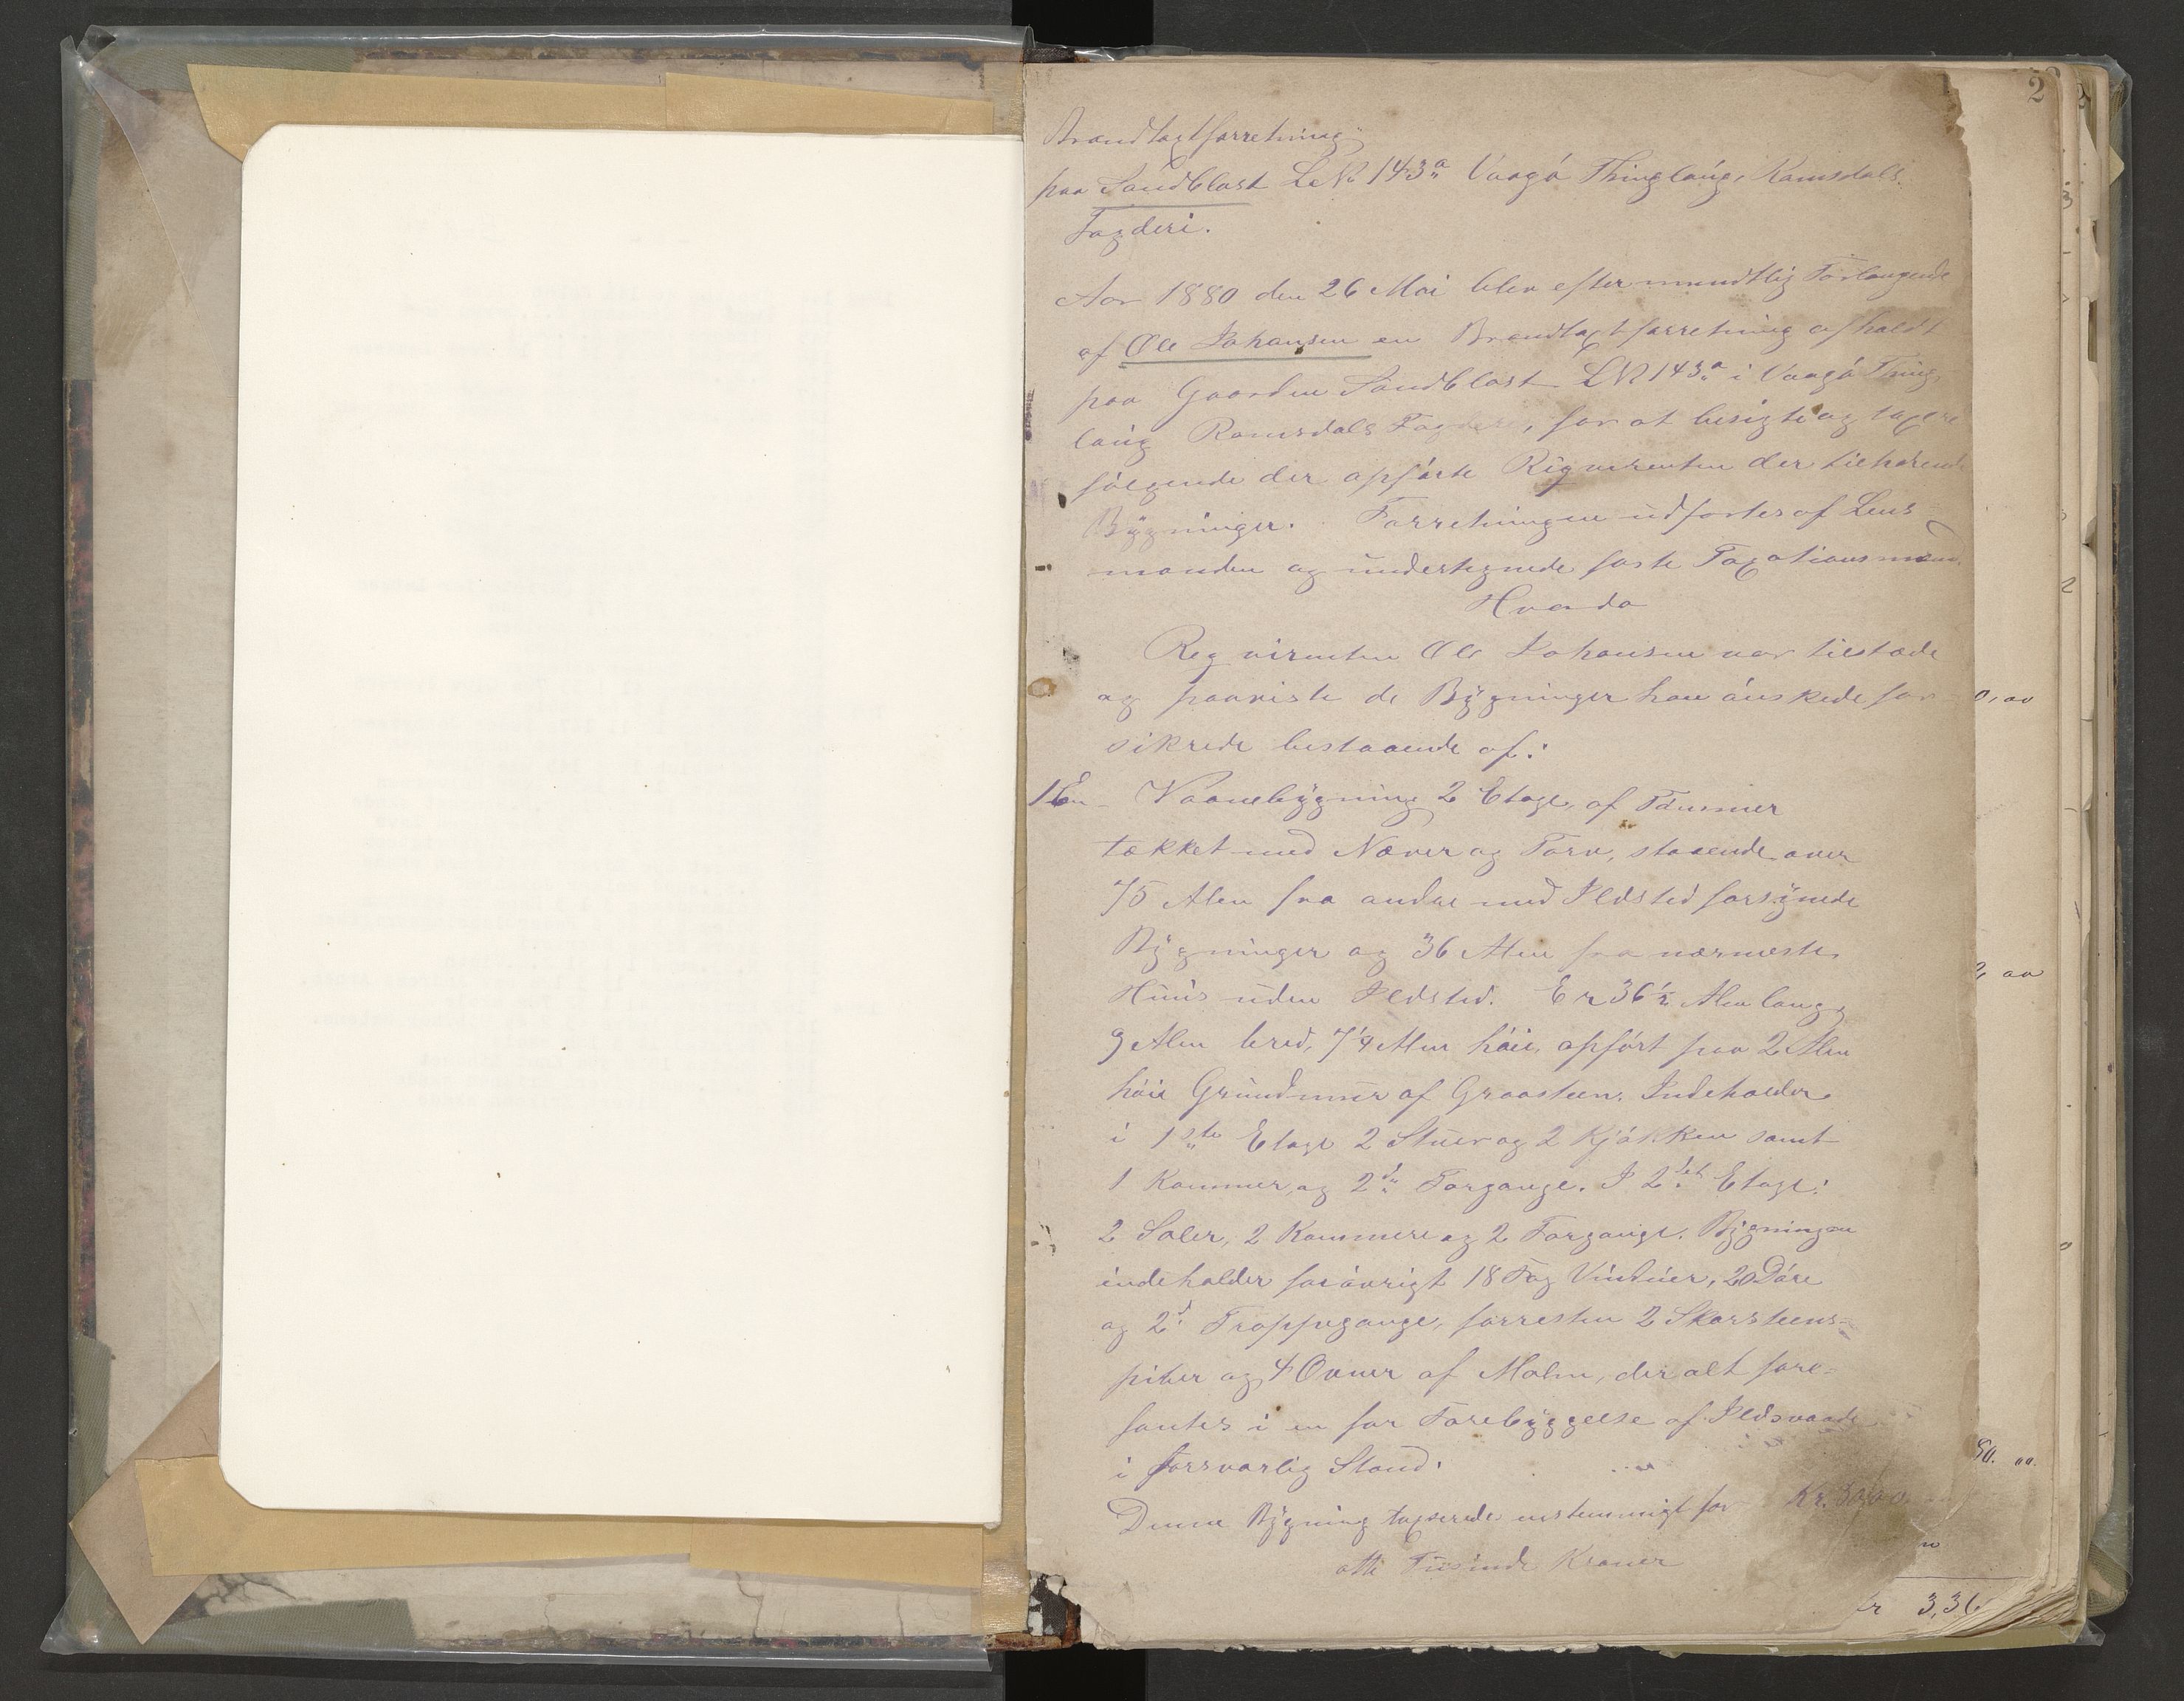 1
2
Brandtaxtforretning
paa Sandblast LeNo 143a Vaagø Thinglaug, Romsdals
Fogderi.
Aar 1880 den 26 Mai blev efter mundtlig Forlangende
af Ole Johansen en Brandtaxtforretning afholdt
paa Gaarden Sandblast LN 143a i Vaagø Thing
laug Romsdals Fogderi, for at besigte og taxere
følgende der opførte Rigvirenten der tilhørende
Bygninger. Forretningen udførtes af Lens
manden og undertegnede faste Taxationsmænd.
Hvorda
Reqvirenten Ole Johansen var tilstæde
og paaviste de Bygninger han ønskede for
sikrede bestaaende af:
1 En Vaanebygning 2 Etage, af Tømmer
tækket med Næver og Torv, staaende over
75 Alen fra andre med Ildsted forsynede
Bygninger og 36 Alen fra nærmeste
Huus uden Ildsted. Er 36 1/2 Alen lang
9 Alen bred, 7 1/4 Alen høie, opført paa 2 Alen
høie Grundmuur af Graasteen. Indeholder
i 1ste Etage 2 Stuer og 2 Kjøkken samt
1 Kammer, og 2de Forgange. I 2det Etage:
2 Saler, 2 Kammere og 2 Forgange. Bygningen
indeholder forøvrigt 18 Fag Vinduer, 20 Døre
og 2d Trappegange, forresten 2 Skorsteens-
piber og 4 Ovner af Malm, der alt fore-
fantes i en for Forebyggelse af Ildsvaade
i forsvarlig Stand.
Denne Bygning taxerede enstemmigt for Kr.
otte Tusinde Kroner
3,36